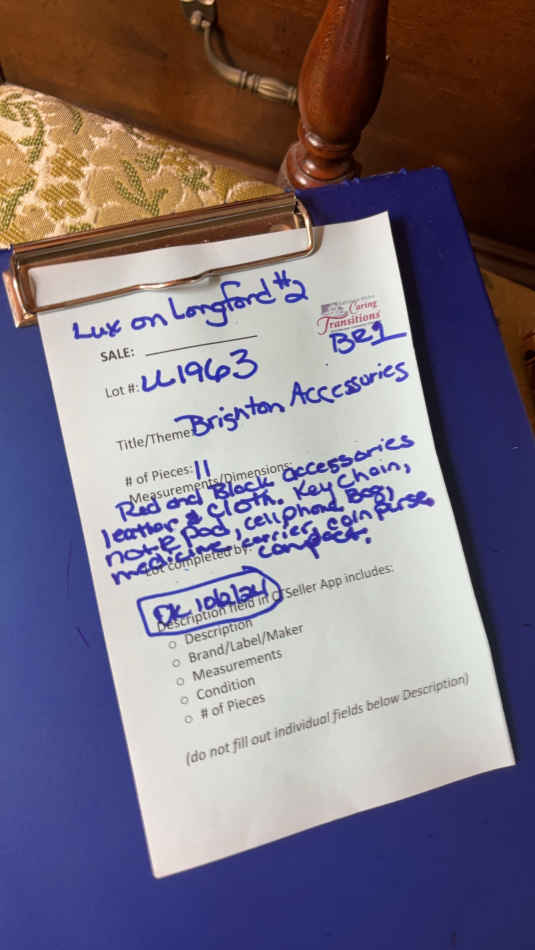 Lux on Longford #2
SALE:
Caring
Transitions
BR1
Lot #: LL1963
Title/Theme: Brighton Accessories
# of Pieces: 11
Measurements/Dimensions:
Red and Black accessories
leather & cloth. Key Chain,
note pad, cell phone Bag,
medicine carrier, coin purse,
compact.
Lot completed by:
Description field in CTSeller App includes:
○ Description
○ Brand/Label/Maker
○ Measurements
○ Condition
○ # of Pieces
(do not fill out individual fields below Description)